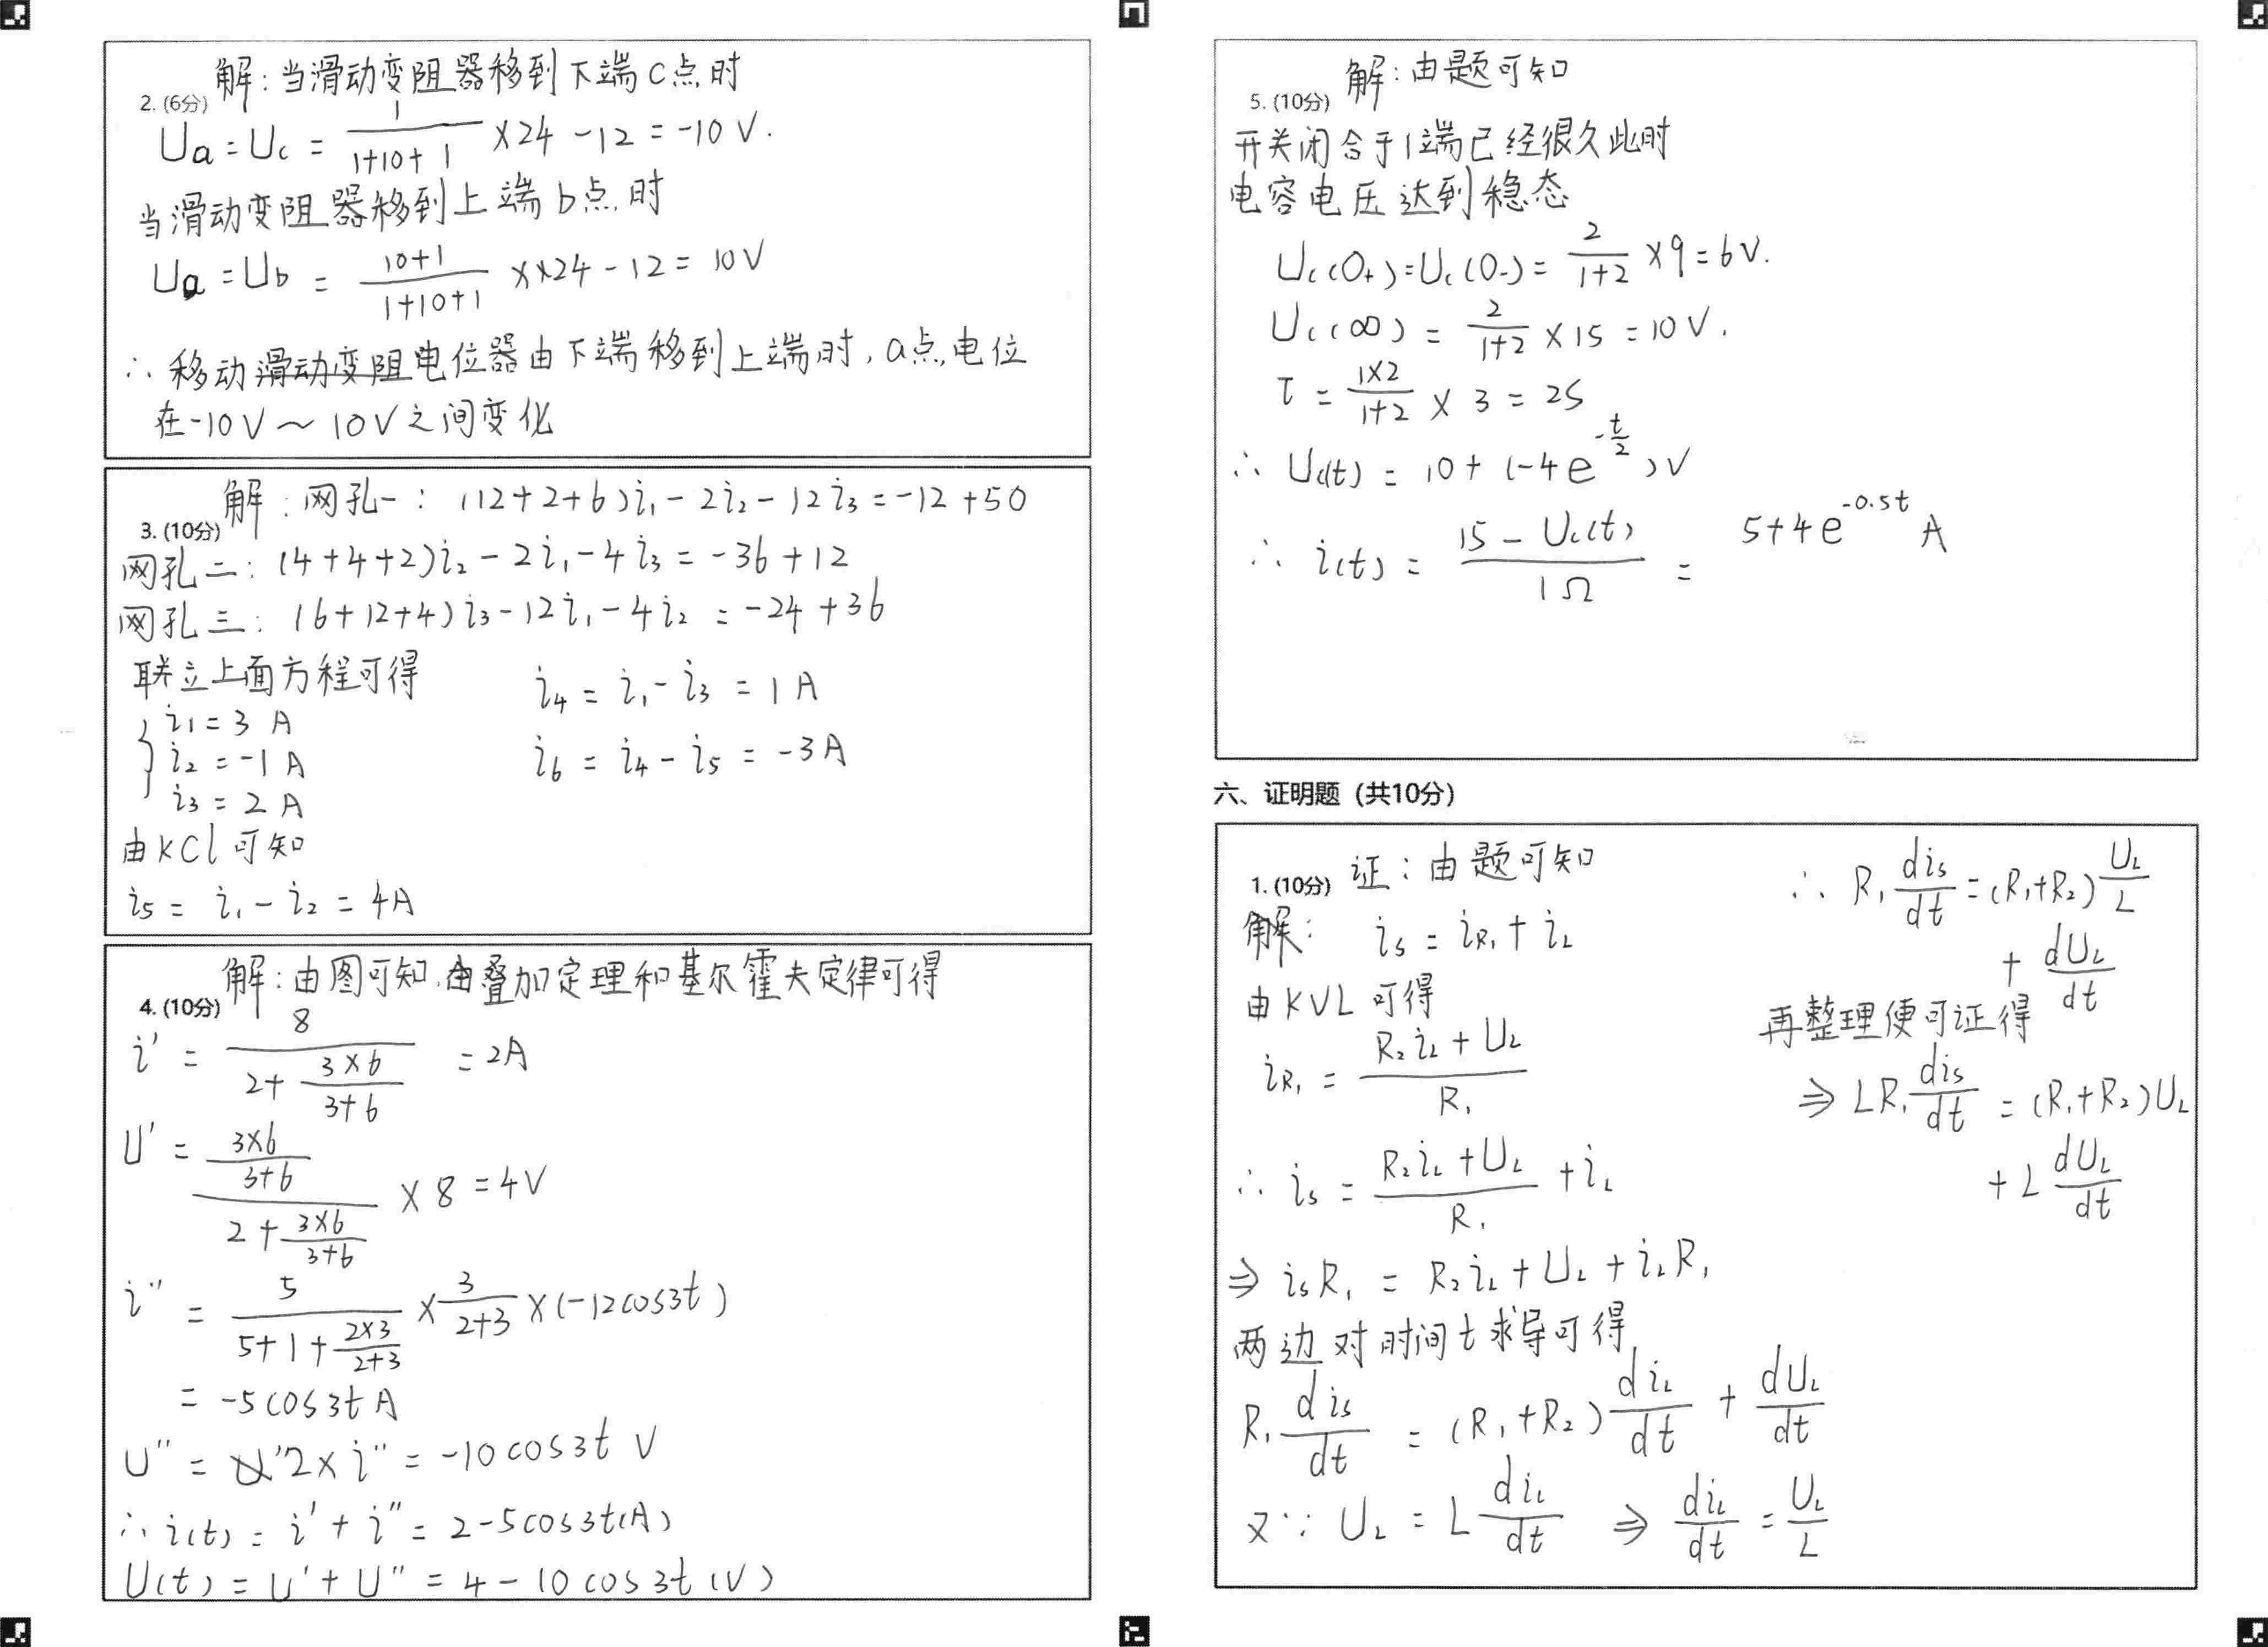 2. (6分) 解：当滑动变阻器移到下端C点时
Ua = Uc = 1/(1+10+1) ×24 -12 = -10 V.
当滑动变阻器移到上端b点时
Ua = Ub = (10+1)/(1+10+1) ××24 - 12 = 10V
∴ 移动滑动变阻电位器由下端移到上端时, a点电位
在-10V ~ 10V之间变化
3. (10分) 解：网孔一： (12+2+6)i₁ - 2i₂ - 12i₃ = -12 +50
网孔二：(4+4+2)i₂ - 2i₁ - 4i₃ = -36 +12
网孔三：(6+12+4)i₃ - 12i₁ - 4i₂ = -24 +36
联立上面方程可得
i₁ = 3 A
i₂ = -1 A
i₃ = 2 A
由KCl可知
i₅ = i₁ - i₂ = 4A
i₄ = i₁ - i₃ = 1 A
i₆ = i₄ - i₅ = -3A
4. (10分) 解：由图可知,由叠加定理和基尔霍夫定律可得
i' = 8/(2+ (3×6)/(3+6)) = 2A
U' = ((3×6)/(3+6))/(2+ (3×6)/(3+6)) × 8 = 4V
i'' = 5/(5+1+ (2×3)/(2+3)) × 3/(2+3) ×(-12cos3t)
= -5cos3t A
U'' = U'2× i'' = -10cos3t V
∴ i(t) = i' + i'' = 2-5cos3t(A)
U(t) = U' + U'' = 4 - 10 cos3t (V)
5. (10分) 解：由题可知
开关闭合于1端已经很久此时
电容电压达到稳态
Uc(0₊) = Uc(0₋) = 2/(1+2) ×9 = 6V.
Uc(∞) = 2/(1+2) ×15 = 10V.
τ = (1×2)/(1+2) × 3 = 2S
∴ Uc(t) = 10 + (-4e^(-t/2))V
∴ i(t) = (15 - Uc(t))/1Ω = 5+4e^(-0.5t) A
六、证明题（共10分）
1. (10分) 证：由题可知
解： is = iR₁ + iL
由KVL可得
iR₁ = (R₂iL + UL)/R₁
∴ is = (R₂iL + UL)/R₁ + iL
⇒ isR₁ = R₂iL + UL + iLR₁
两边对时间t求导可得
R₁ dis/dt = (R₁+R₂) diL/dt + dUL/dt
又∵ UL = L diL/dt ⇒ diL/dt = UL/L
∴ R₁ dis/dt = (R₁+R₂) UL/L
+ dUL/dt
再整理便可证得
⇒ LR₁ dis/dt = (R₁+R₂)UL
+ L dUL/dt